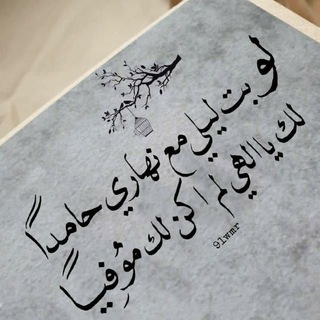 لو بت ليلي مع نهاري حامداً
لك يا الهي لم اكن لك مُوفِياً
91wmr